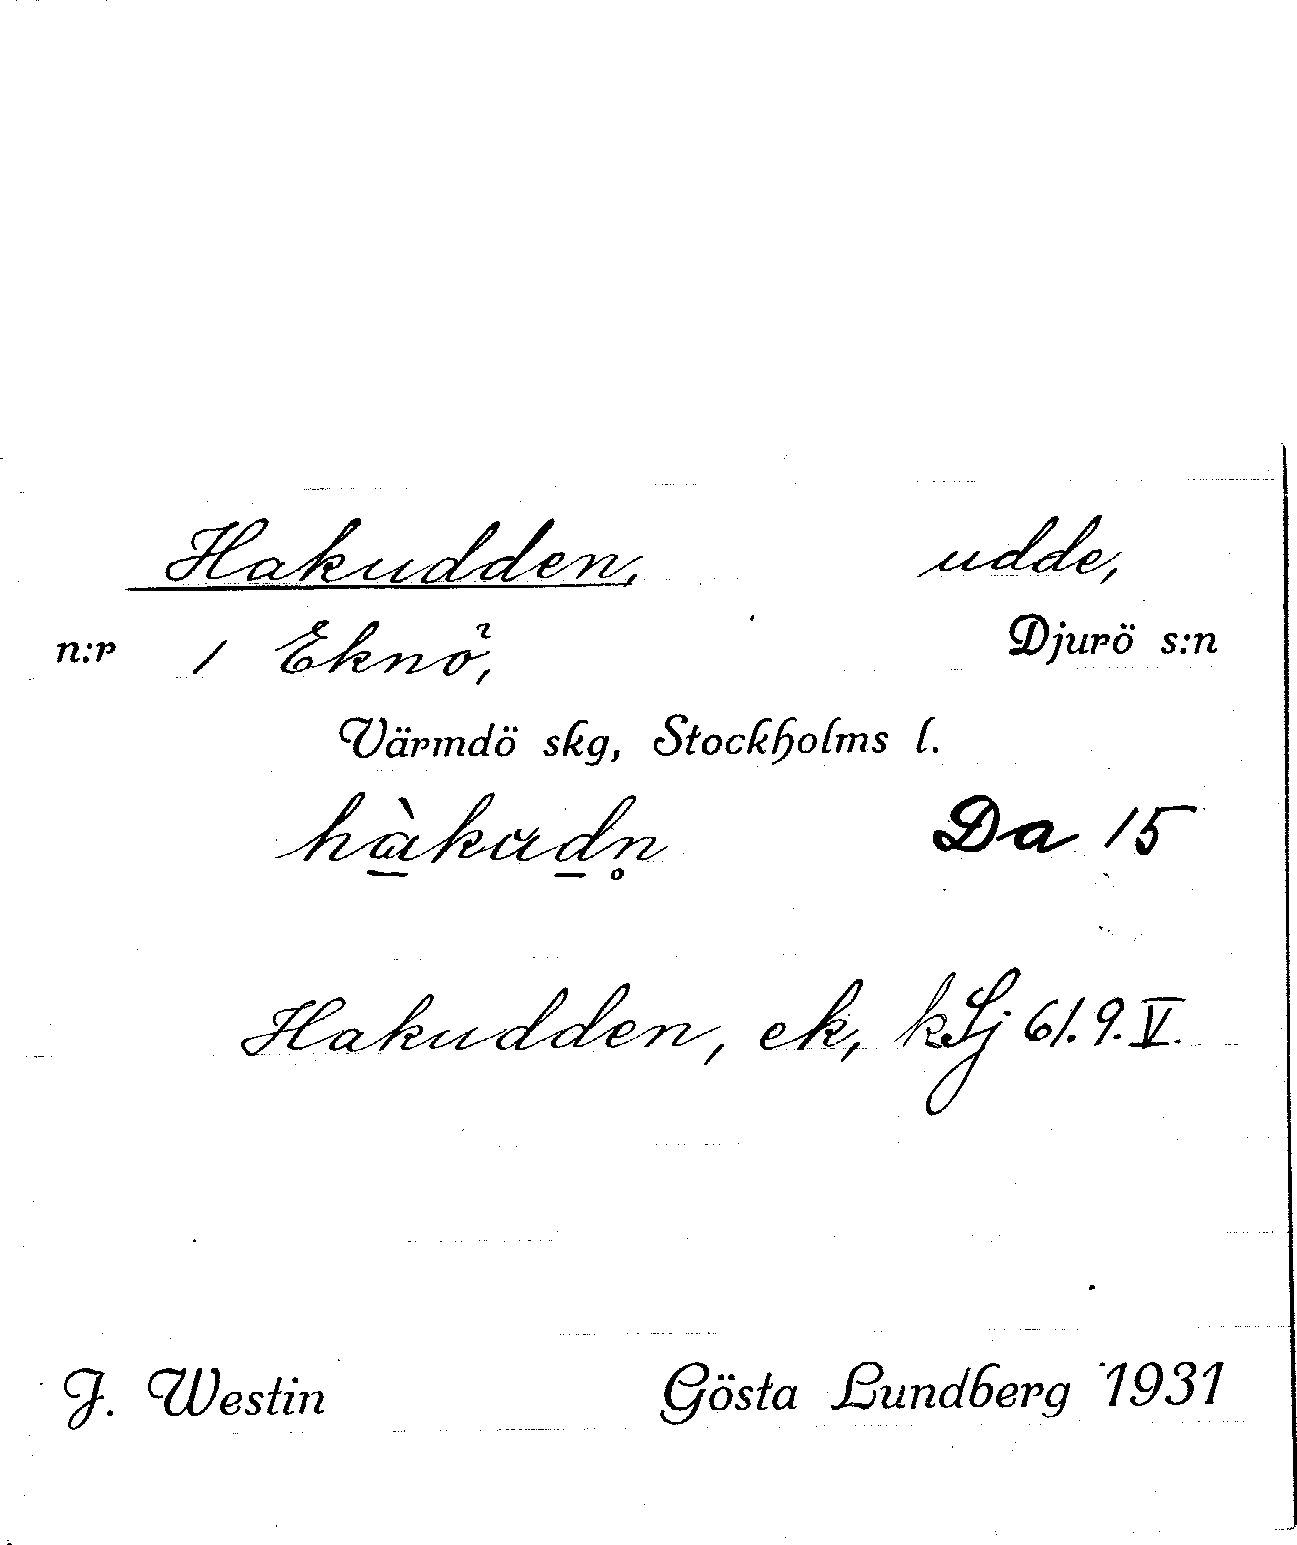 Hakudden, udde,
n:r 1 Eknö, Djurö s:n
Värmdö skg, Stockholms l.
hàkadn̥ Da 15
Hakudden, ek, kLj 61.9.V.
J. Westin Gösta Lundberg 1931